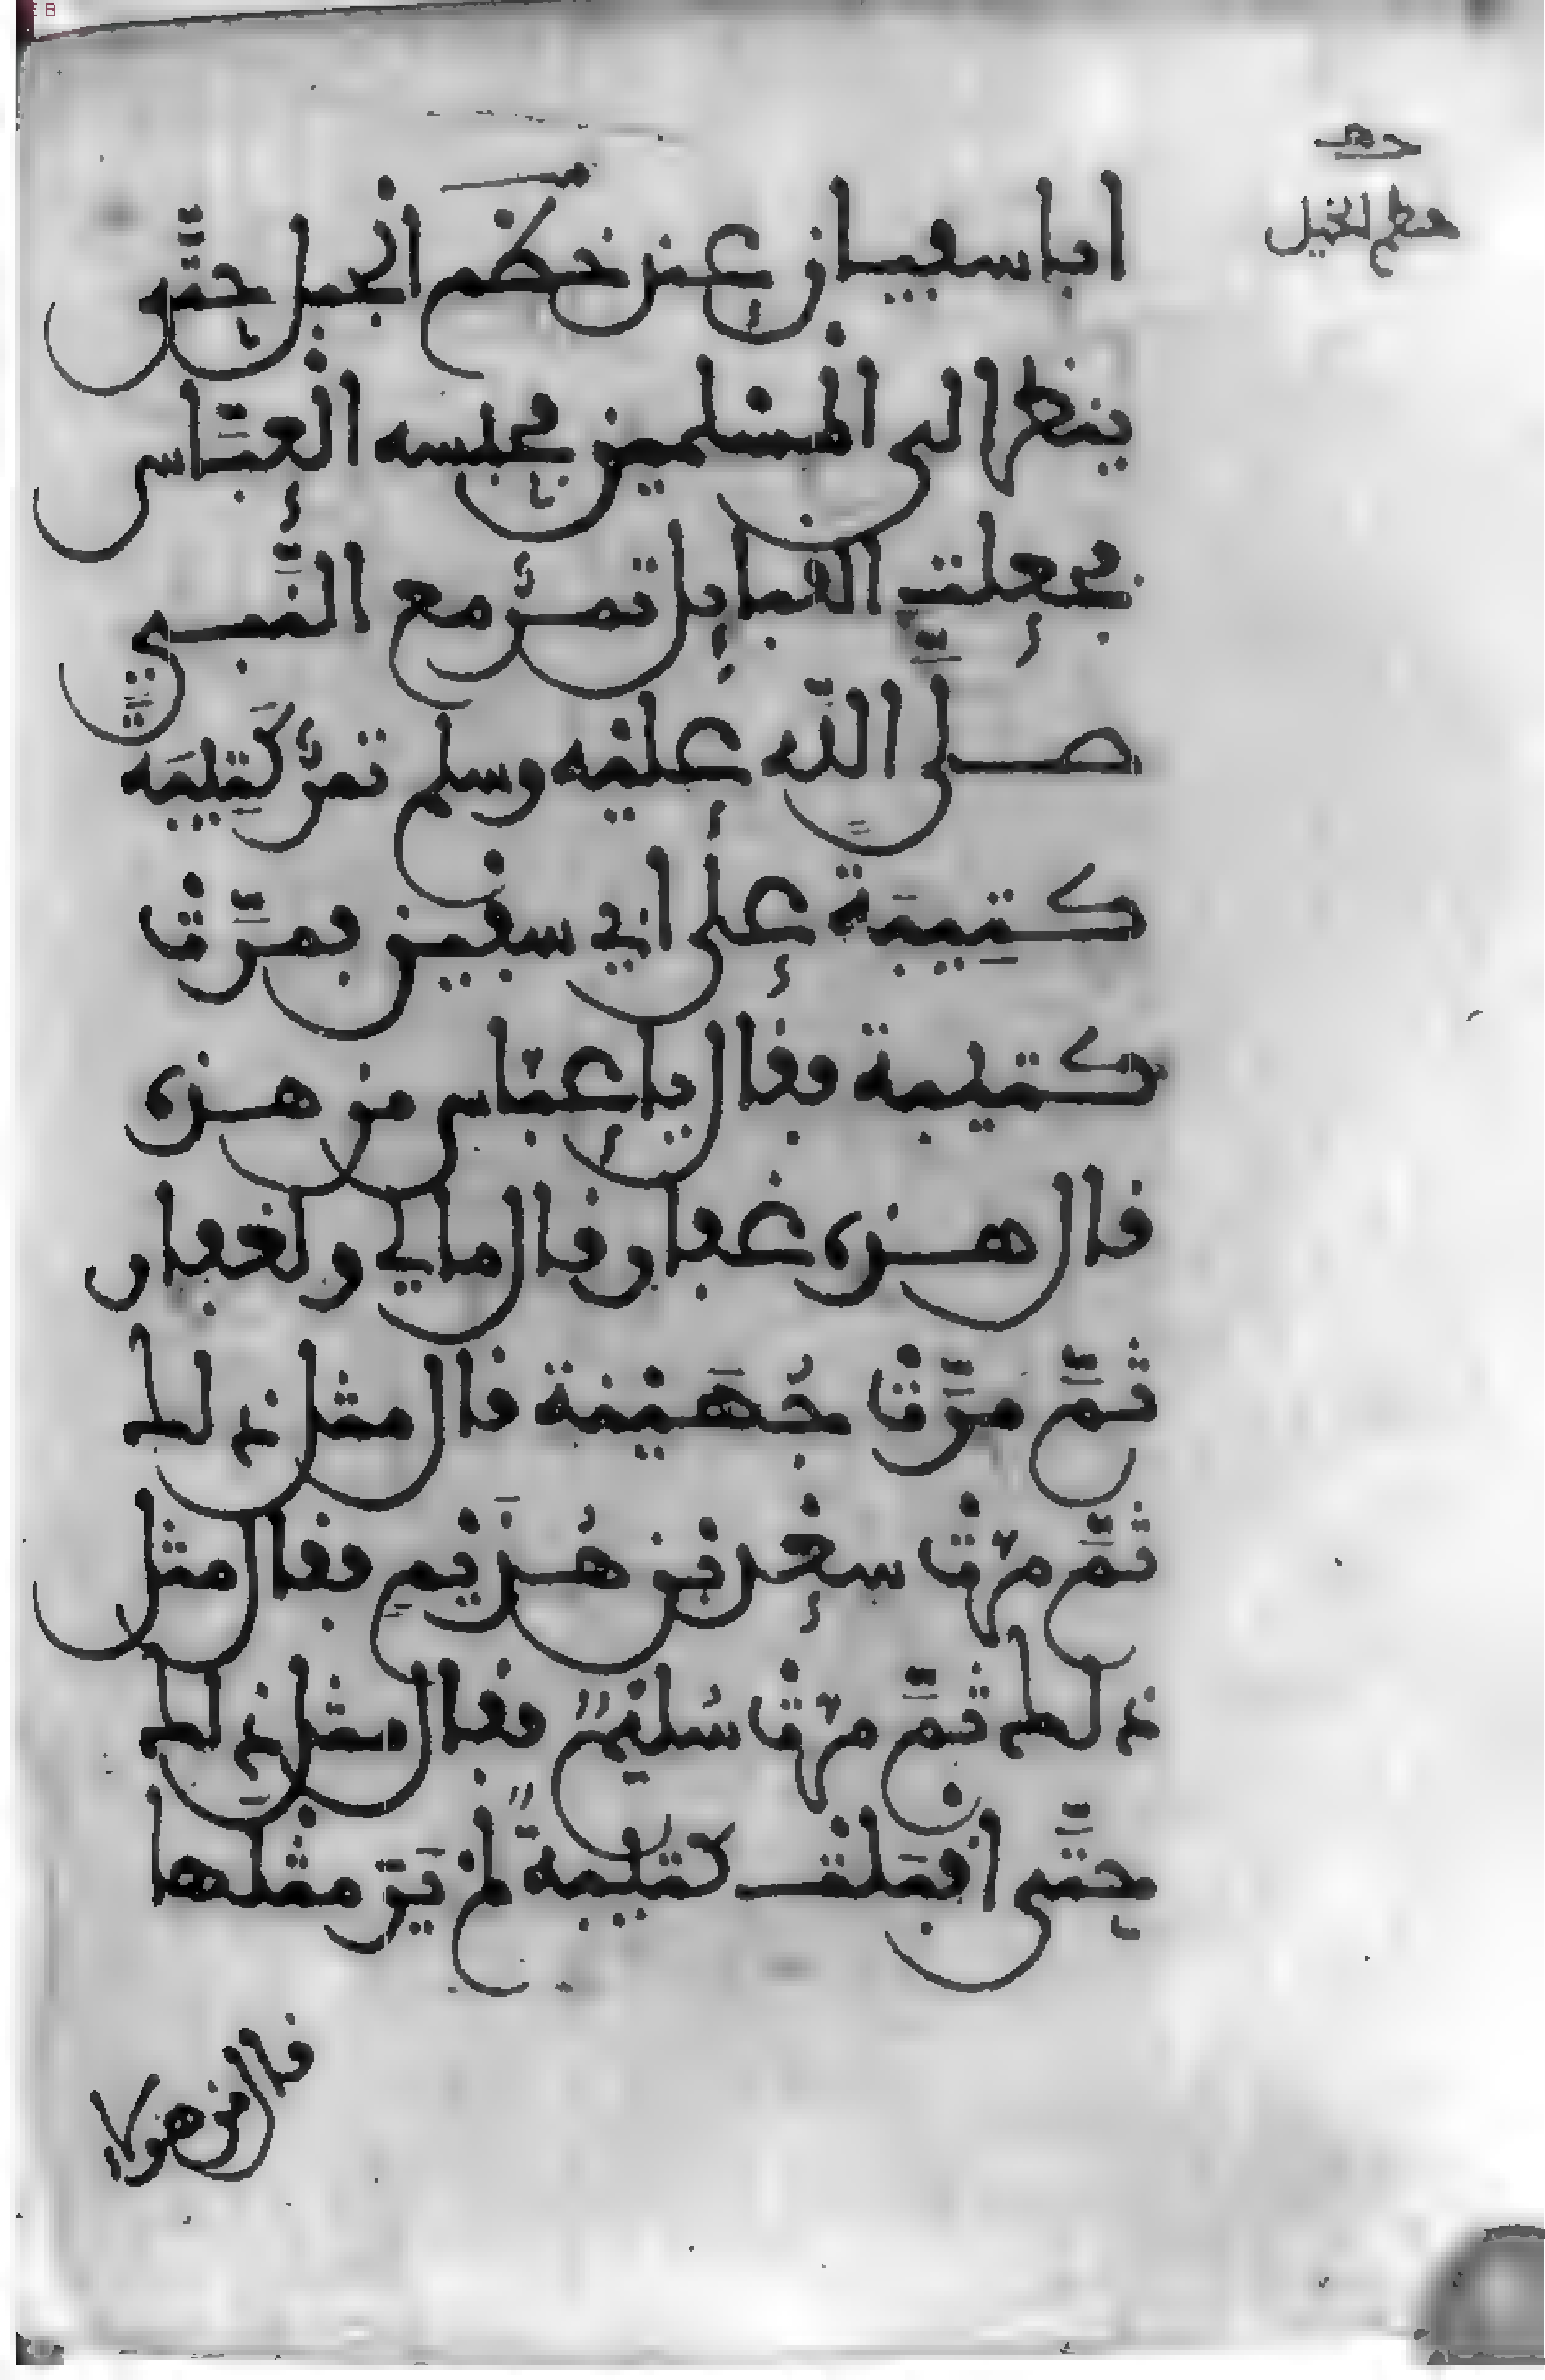 حهـ
حطم الخيل
ابا سفيان عند خَطْم الجبل حتَّى
ينظر الى المسْلمين فحبسه الْعبَّاس
فجعلت القبايل تمرُّ مع النَّبي
صلَّى اللّه عليْه وسلم تمرُّ كَتِيبَةً
كتِيبَةً علَى ابي سفين فمرَّتْ
كتيبة فقال يا عبّاس من هذه
قال هذه غفار قال مالي ولغفار
ثمَّ مرَّتْ جُهَيْنة قال مثل ذلك
ثمَّ مرّتْ سعْد بْن هُذَيْمٍ فقال مثل
ذلك ثمَّ مرّتْ سُليْمٌ فقال مثل ذلك
حتَّى اقْبَلتْ كتيبةً لمْ يَرَ مثْلها
قال من هولاء